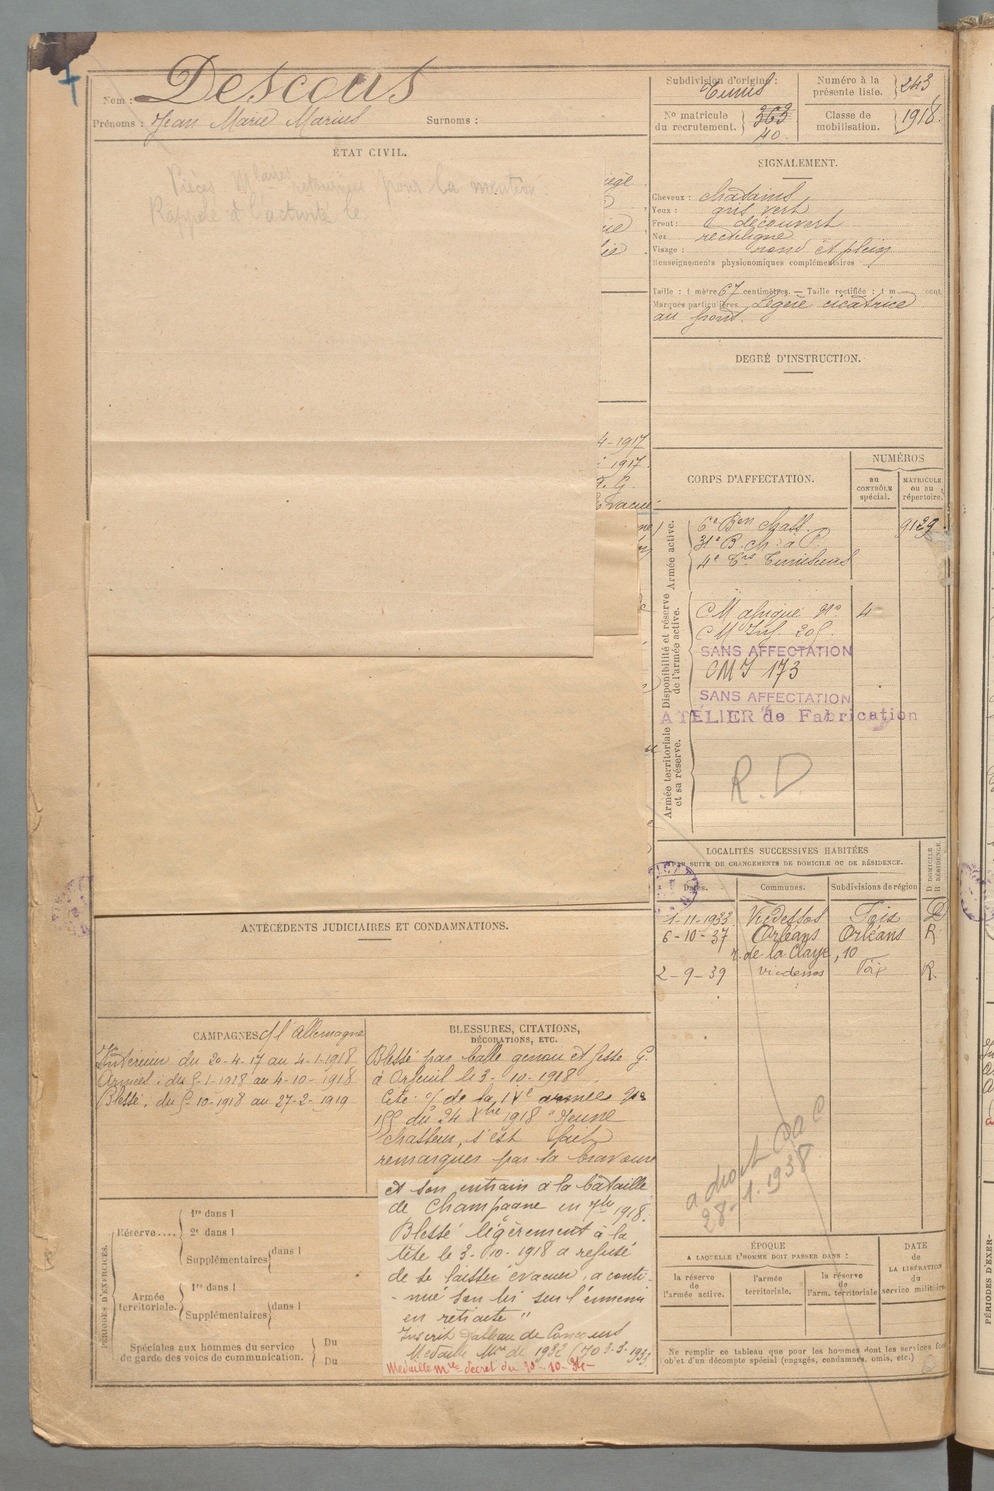 Nom : Descous
Prénoms : Jean Marie Marius Surnoms :
ÉTAT CIVIL.
Pièces retournées pour la mention :
Rappelé à l'activité le
4-1917
1917
Évacué
Subdivision d'origine :
Tunis
Numéro à la
présente liste. 243
No matricule
du recrutement. 363
40
Classe de
mobilisation. 1918.
SIGNALEMENT.
Cheveux : chatains
Yeux : gris vert
Front : découvert
Nez rectiligne
Visage : rond et plein
Renseignements physionomiques complémentaires
Taille : 1 mètre 67 centimètres. — Taille rectifiée : 1 m cent.
Marques particulières Légère cicatrice
au front.
DEGRÉ D'INSTRUCTION.
CORPS D'AFFECTATION.
NUMÉROS
au
CONTRÔLE
spécial.
MATRICULE
ou au
répertoire.
Armée active.
6e Bon Chass. 9129
31e B. ch. à P.
4e Tirs Tunisiens
Disponibilité et réserve
de l'armée active.
CM afrique No 4
CM Inf. 205
SANS AFFECTATION
CMI 173
SANS AFFECTATION
ATELIER de Fabrication
Armée territoriale
et sa réserve.
R. D.
LOCALITÉS SUCCESSIVES HABITÉES
PAR SUITE DE CHANGEMENTS DE DOMICILE OU DE RÉSIDENCE.
Dates. Communes. Subdivisions de région
D DOMICILE
R RÉSIDENCE.
1-11-1933 Vicdessos Foix D
6-10-37 Orléans Orléans R
r. de la Claye, 10
2-9-39 Vicdessos Foix R.
a droit
28-1.1938
ANTÉCÉDENTS JUDICIAIRES ET CONDAMNATIONS.
CAMPAGNES c/ l'Allemagne
Intérieur du 20-4-17 au 4-1-1918
Armées : du 5-1-1918 au 4-10-1918
Blessé. du 5-10-1918 au 27-2-1919
BLESSURES, CITATIONS,
DÉCORATIONS, ETC.
Blessé par balle genou et fesse G.
à Orfeuil le 3-10-1918
Cité of de la IVe armée No
155 du 24 Xbre 1918 "Jeune
chasseur, s'est fait
remarquer par sa bravoure
et son entrain à la bataille
de Champagne en 7bre 1918.
Blessé légèrement à la
tête le 3-10-1918 a refusé
de se laisser évacuer, a conti-
-nué son tir sur l'ennemi
en retraite"
Inscrit Tableau de Concours
Médaille Mre de 1932
Médaille Mre décret du 30-10-34-
PÉRIODES D'EXERCICES.
Réserve....
1re dans l
2e dans l
Supplémentaires dans l
Armée
territoriale.
1re dans l
Supplémentaires dans l
Spéciales aux hommes du service
de garde des voies de communication.
Du
Du
ÉPOQUE
A LAQUELLE L'HOMME DOIT PASSER DANS :
la réserve
de l'armée active.
l'armée
territoriale.
la réserve
de
l'arm. territoriale
DATE
de
LA LIBÉRATION
du
service militaire
Ne remplir ce tableau que pour les hommes dont les services font
l'objet d'un décompte spécial (engagés, condamnés, omis, etc.)
PÉRIODES D'EXER-